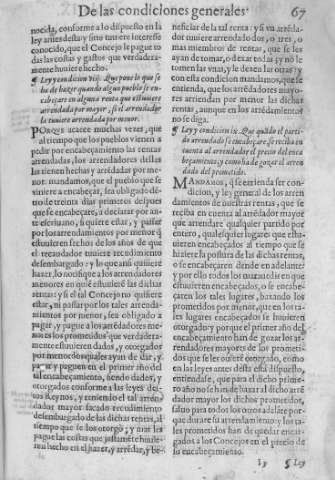 De las condiciones generales. 67
nocida, conforme a lo dispuesto en la
ley antes desta y si no tuuiere interesse
conocido, que el Concejo le pague to
das las costas y gastos que verdadera-
mente huuiere hecho.
¶ Ley y condicion viij. Que pone lo que se
ha de hazer quando algun pueblo se en
cabeçare en alguna renta que estuuiere
arrendada por mayor, si el arrendador
la tuuiere arrendada por menor.
PORQVE acaece muchas vezes, que
al tiempo que los pueblos vienen a
pedir por encabeçamiento las rentas
arrendadas, los arrendadores dellas
las tienen hechas y arrẽdadas por me-
nor: mandamos, que el pueblo que se
viniere a encabeçar, sea obligado dẽ-
tro de treinta dias primeros despues
que se encabeçare, a declarar por an-
te escriuano, si quiere estar, y passar
por los arrendamientos por menor q̃
estuuieren fechos de los años de que
el recaudador tuuiere recudimiento
desembargado: y lo que assi quisiere
hazer, lo notifique a los arrendadores
menores en quiẽ estuuiere las dichas
rentas: y si el tal Concejo no quisiere
estar, ni passar por los tales arrenda-
mientos por menor, sea obligado a
pagar, y pague a los arrẽdadores me-
nores los prometidos que verdadera-
mente estuuieren dados, y otorgados
por menor los quales ayan de dar, y
paguen en el primer año de
tal encabeçamiento, siendo dados, y
otorgados conforme a las leyes des-
tos Reynos, y teniendo el tal arrẽn-
dador mayor sacado recudimiento
desembargado de las dichas rentas, al
tiempo que se los otorgó; y mas les
pague las costas que justamẽte huuie-
ren hecho en el hazer, y arrẽdar, y be-
neficiar de la tal renta: y si va arrẽda-
dor tuuiere arrendado dos, o tres, o
mas miembros de rentas, que se les
ayan de tomar, o dexar todas; y no le
tomen las vnas, y le dexen las otras: y
con esta condicion mandamos, que se
entienda, que los arrẽdadores mayo-
res arriendan por menor las dichas
rentas, aunque en los arrẽdamientos
no se diga.
¶ Ley y condicion ix. Que quãdo el parti-
do arrendado se encabeçare, se reciba en
cuenta al arrendador el precio del enca
beçamiento; y como ha de gozar el arren
dado del prometido.
MANDAMOS, q̃ se entienda ser con
dicion, y ley general de los arren
damientos de nuestras rentas, que se
reciba en cuenta al arrẽdador mayor
que arrendare qualquier partido por
entero, qualesquier lugares que estu-
uieren encabeçados al tiempo que se
hiziere la postura de las dichas rentas,
o se encabeçaren dende en adelante:
y por ello todos los marauedis en que
estuuieren encabeçados, o se encabe-
çaren los tales lugares, baxando los
prometidos por menor, que en los ta-
les lugares encabeçados se huuieren
otorgado: y porque el primer año del
encabeçamiento han de gozar los ar-
rendadores mayores de los prometi-
dos que se les ouiere otorgado, como
en las leyes antes desta està dispuesto,
entiendase, que para el dicho prime-
ro año no se han de baxar al dicho arrẽ
dador mayor los dichos prometidos,
saluo para todos los otros adelãte por-
que durare su arrendamiento: y los ta-
les prometidos han de quedar encar-
gados a los Concejos en el precio de
su encabeçamiento.
¶ Ley